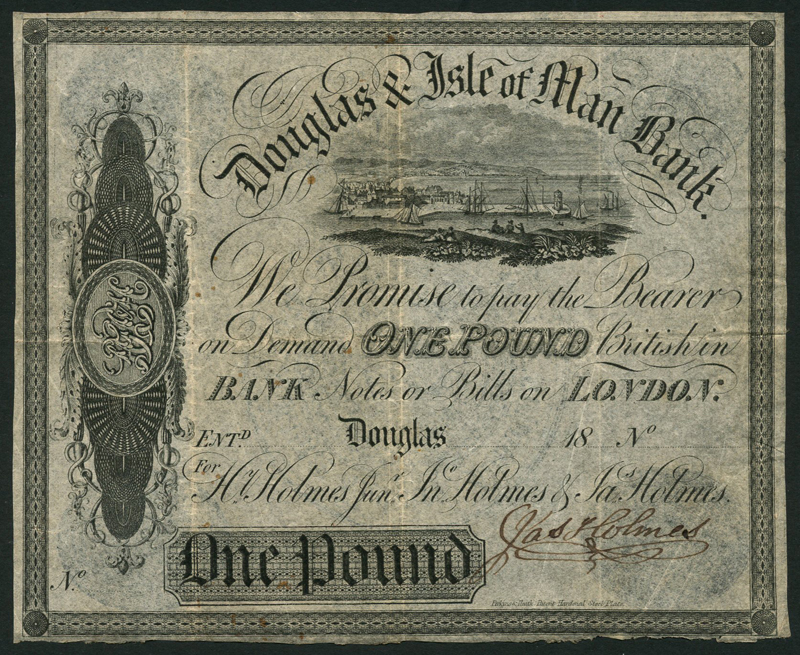 Douglas & Isle of Man Bank.
We Promise to pay the Bearer
on Demand ONE POUND British in
BANK Notes or Bills on LONDON.
ENT.D Douglas 18 No
For
Hy. Holmes Junr. Jno. Holmes & Jas. Holmes.
Jas Holmes
No. One Pound
Perkins & Heath Patent Hardened Steel Plate.